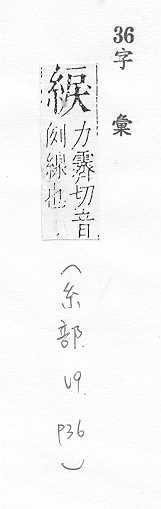 36字彙
綟
力霽切音
例線也
（糸部. 19. P36）